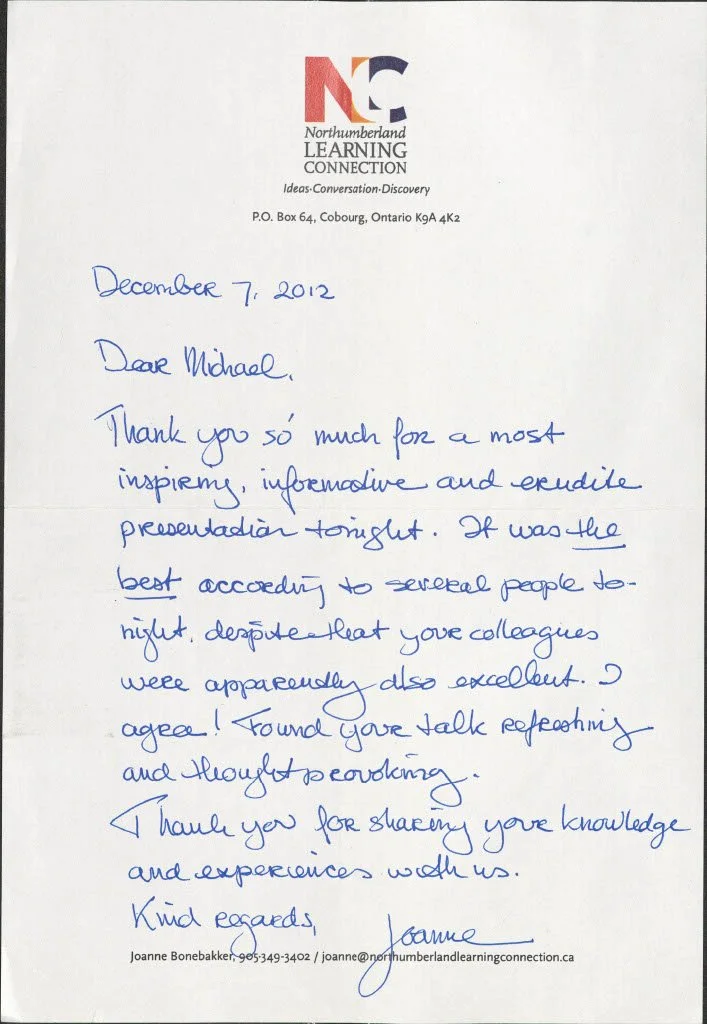 NLC
Northumberland
LEARNING
CONNECTION
Ideas·Conversation·Discovery
P.O. Box 64, Cobourg, Ontario K9A 4K2
December 7, 2012
Dear Michael,
Thank you so much for a most
inspiring, informative and erudite
presentation tonight. It was the
best according to several people to-
night, despite that your colleagues
were apparently also excellent. I
agree! Found your talk refreshing
and thoughtprovoking.
Thank you for sharing your knowledge
and experiences with us.
Kind regards, Joanne
Joanne Bonebakker, 905-349-3402 / joanne@northumberlandlearningconnection.ca